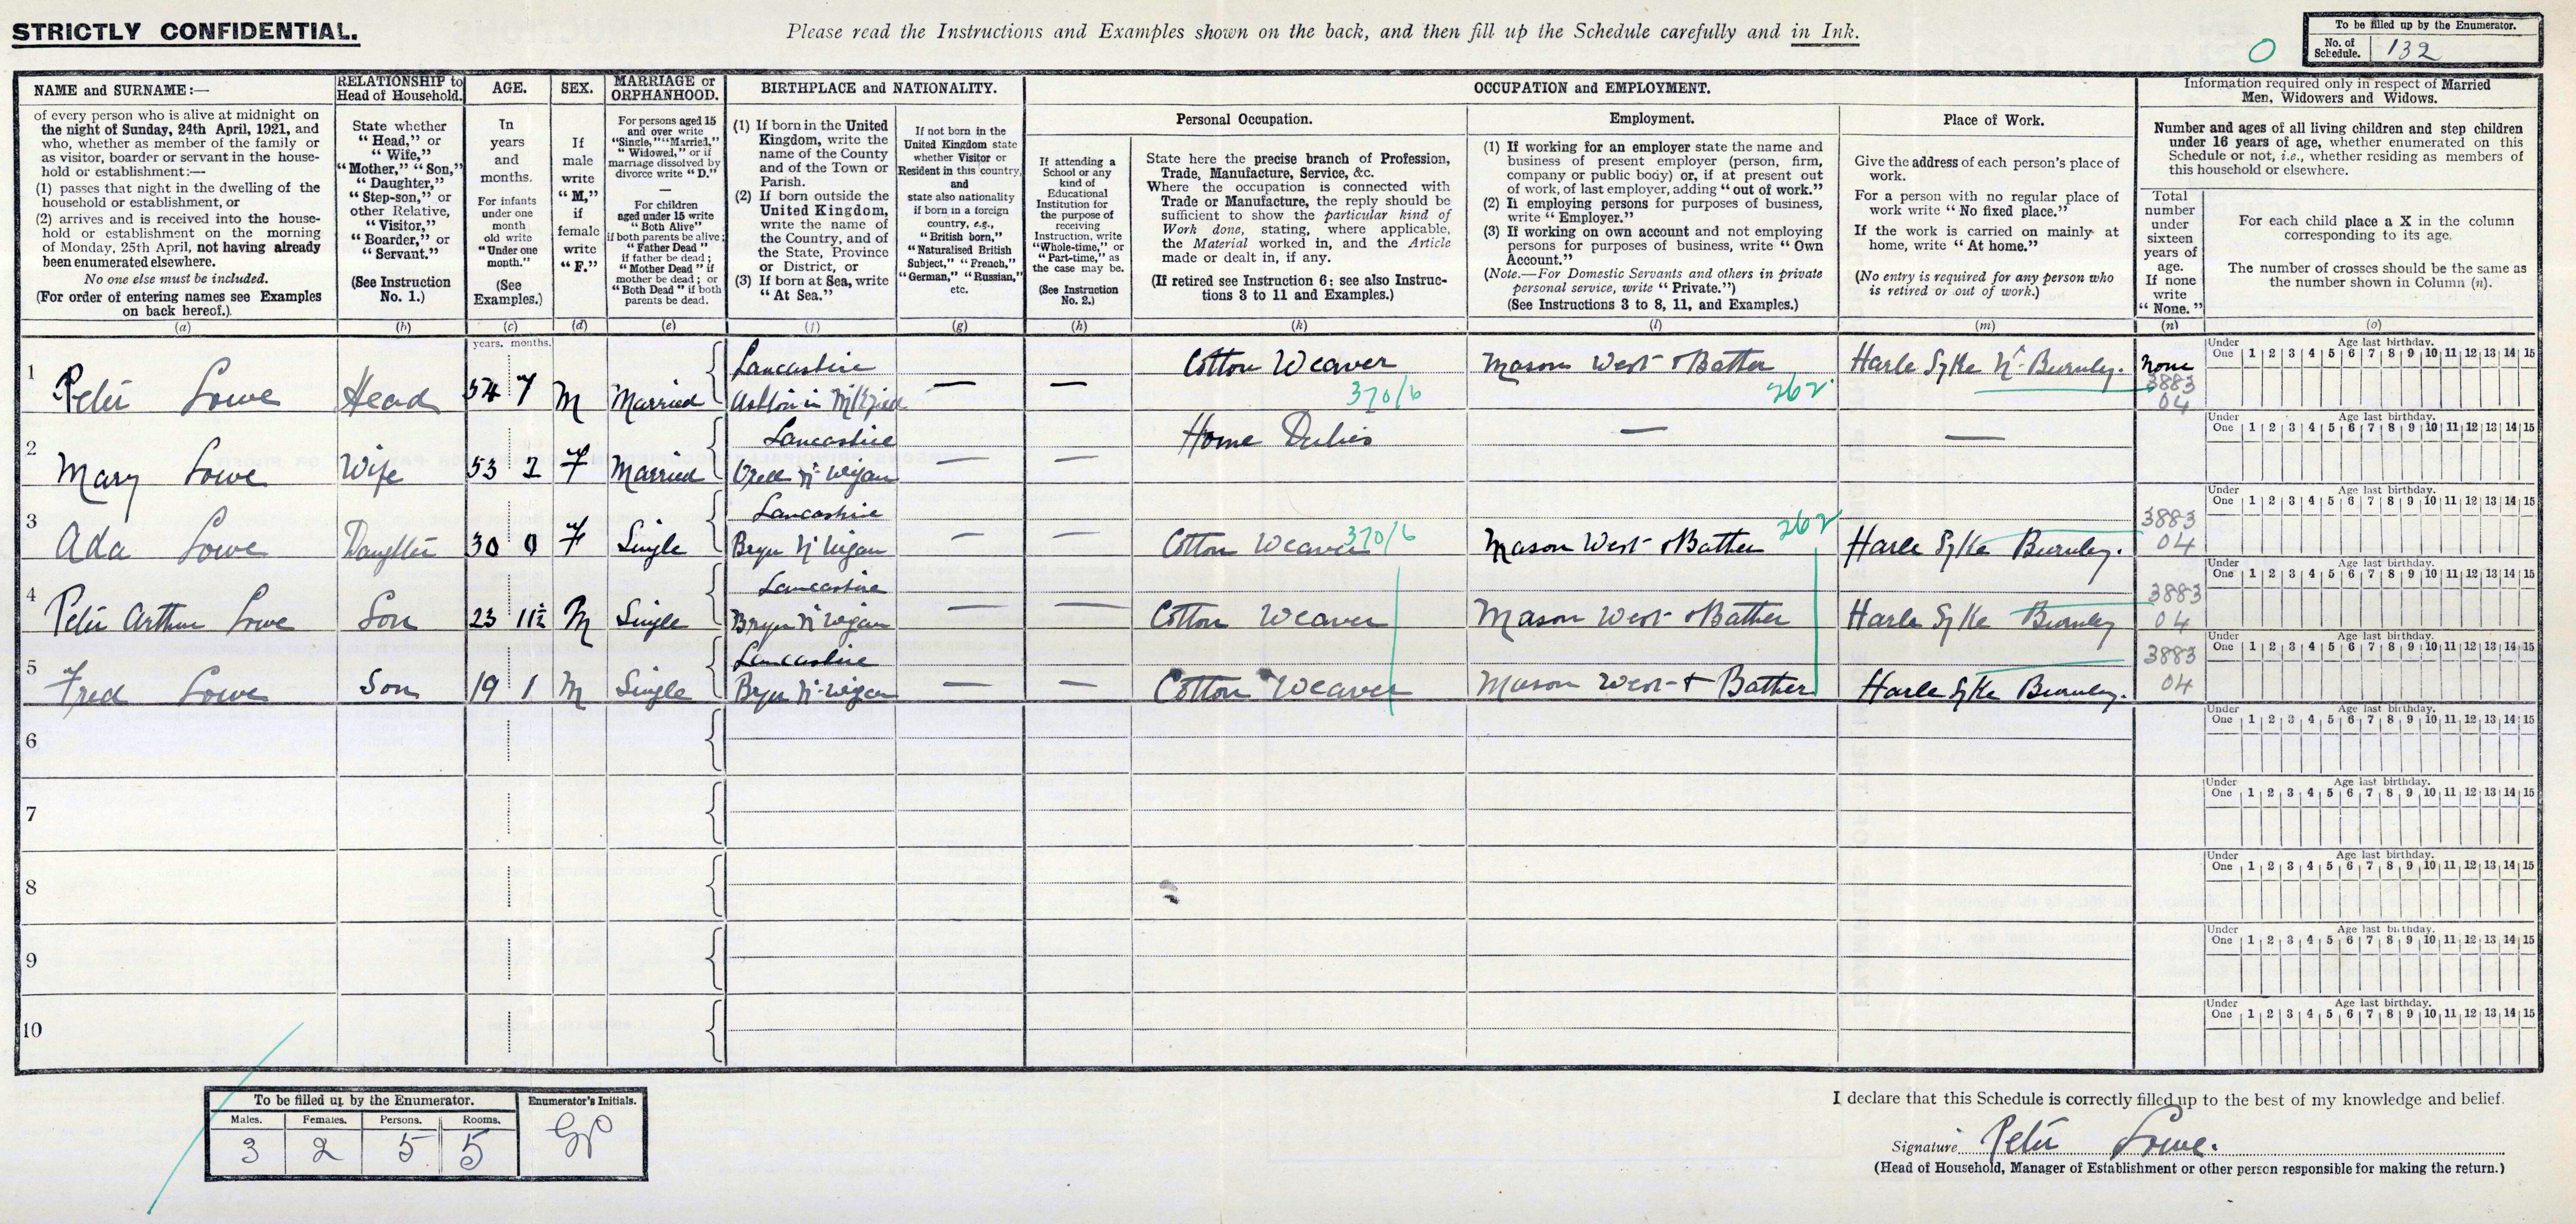 STRICTLY CONFIDENTIAL.
Please read the Instructions and Examples shown on the back, and then fill up the Schedule carefully and in Ink.
To be filled up by the Enumerator.
No. of Schedule. 132
0
NAME and SURNAME:—
of every person who is alive at midnight on
the night of Sunday, 24th April, 1921, and
who, whether as member of the family or
as visitor, boarder or servant in the house-
hold or establishment:—
(1) passes that night in the dwelling of the
household or establishment, or
(2) arrives and is received into the house-
hold or establishment on the morning
of Monday, 25th April, not having already
been enumerated elsewhere.
No one else must be included.
(For order of entering names see Examples
on back hereof.)
(a)
RELATIONSHIP to
Head of Household.
State whether
"Head," or
"Wife,"
"Mother," "Son,"
"Daughter,"
"Step-son," or
other Relative,
"Visitor,"
"Boarder," or
"Servant."
(See Instruction
No. 1.)
(b)
AGE.
In
years
and
months.
For infants
under one
month
old write
"Under one
month."
(See
Examples.)
(c)
SEX.
If
male
write
"M,"
if
female
write
"F."
(d)
MARRIAGE or
ORPHANHOOD.
For persons aged 15
and over write
"Single," "Married,"
"Widowed," or if
marriage dissolved by
divorce write "D."
—
For children
aged under 15 write
"Both Alive"
if both parents be alive;
"Father Dead"
if father be dead;
"Mother Dead" if
mother be dead; or
"Both Dead" if both
parents be dead.
(e)
BIRTHPLACE and NATIONALITY.
(1) If born in the United
Kingdom, write the
name of the County
and of the Town or
Parish.
(2) If born outside the
United Kingdom,
write the name of
the Country, and of
the State, Province
or District, or
(3) If born at Sea, write
"At Sea."
(f)
If not born in the
United Kingdom state
whether Visitor or
Resident in this country,
and
state also nationality
if born in a foreign
country, e.g.,
"British born,"
"Naturalised British
Subject," "French,"
"German," "Russian,"
etc.
(g)
OCCUPATION and EMPLOYMENT.
Personal Occupation.
If attending a
School or any
kind of
Educational
Institution for
the purpose of
receiving
Instruction, write
"Whole-time," or
"Part-time," as
the case may be.
(See Instruction
No. 2.)
(h)
State here the precise branch of Profession,
Trade, Manufacture, Service, &c.
Where the occupation is connected with
Trade or Manufacture, the reply should be
sufficient to show the particular kind of
Work done, stating, where applicable,
the Material worked in, and the Article
made or dealt in, if any.
(If retired see Instruction 6; see also Instruc-
tions 3 to 11 and Examples.)
(k)
Employment.
(1) If working for an employer state the name and
business of present employer (person, firm,
company or public body) or, if at present out
of work, of last employer, adding "out of work."
(2) If employing persons for purposes of business,
write "Employer."
(3) If working on own account and not employing
persons for purposes of business, write "Own
Account."
(Note.—For Domestic Servants and others in private
personal service, write "Private.")
(See Instructions 3 to 8, 11, and Examples.)
(l)
Place of Work.
Give the address of each person's place of
work.
For a person with no regular place of
work write "No fixed place."
If the work is carried on mainly at
home, write "At home."
(No entry is required for any person who
is retired or out of work.)
(m)
Information required only in respect of Married
Men, Widowers and Widows.
Number and ages of all living children and step children
under 16 years of age, whether enumerated on this
Schedule or not, i.e., whether residing as members of
this household or elsewhere.
Total
number
under
sixteen
years of
age.
If none
write
"None."
(n)
For each child place a X in the column
corresponding to its age.
The number of crosses should be the same as
the number shown in Column (n).
(o)
years. months.
Under One Age last birthday.
1 2 3 4 5 6 7 8 9 10 11 12 13 14 15
1 Peter Lowe Head 54 7 M Married Lancashire Ashton in M'kfield — — Cotton Weaver 370/6 Mason West & Bather 262 Harle Syke Nr Burnley. None 3883 04
Under One Age last birthday.
1 2 3 4 5 6 7 8 9 10 11 12 13 14 15
2 Mary Lowe Wife 53 2 F Married Lancashire Orell Nr Wigan — — Home Duties — —
Under One Age last birthday.
1 2 3 4 5 6 7 8 9 10 11 12 13 14 15
3 Ada Lowe Daughter 30 0 F Single Lancashire Bryn Nr Wigan — — Cotton Weaver 370/6 Mason West & Bather 262 Harle Syke Burnley. 3883 04
Under One Age last birthday.
1 2 3 4 5 6 7 8 9 10 11 12 13 14 15
4 Peter Arthur Lowe Son 23 11½ M Single Lancashire Bryn Nr Wigan — — Cotton Weaver Mason West & Bather Harle Syke Burnley 3883 04
Under One Age last birthday.
1 2 3 4 5 6 7 8 9 10 11 12 13 14 15
5 Fred Lowe Son 19 1 M Single Lancashire Bryn Nr Wigan — — Cotton Weaver Mason West & Bather Harle Syke Burnley. 3883 04
6 Under One Age last birthday.
1 2 3 4 5 6 7 8 9 10 11 12 13 14 15
7 Under One Age last birthday.
1 2 3 4 5 6 7 8 9 10 11 12 13 14 15
8 Under One Age last birthday.
1 2 3 4 5 6 7 8 9 10 11 12 13 14 15
9 Under One Age last birthday.
1 2 3 4 5 6 7 8 9 10 11 12 13 14 15
10 Under One Age last birthday.
1 2 3 4 5 6 7 8 9 10 11 12 13 14 15
To be filled up by the Enumerator.
Males. Females. Persons. Rooms.
3 2 5 5
Enumerator's Initials.
GP
I declare that this Schedule is correctly filled up to the best of my knowledge and belief.
Signature Peter Lowe.
(Head of Household, Manager of Establishment or other person responsible for making the return.)